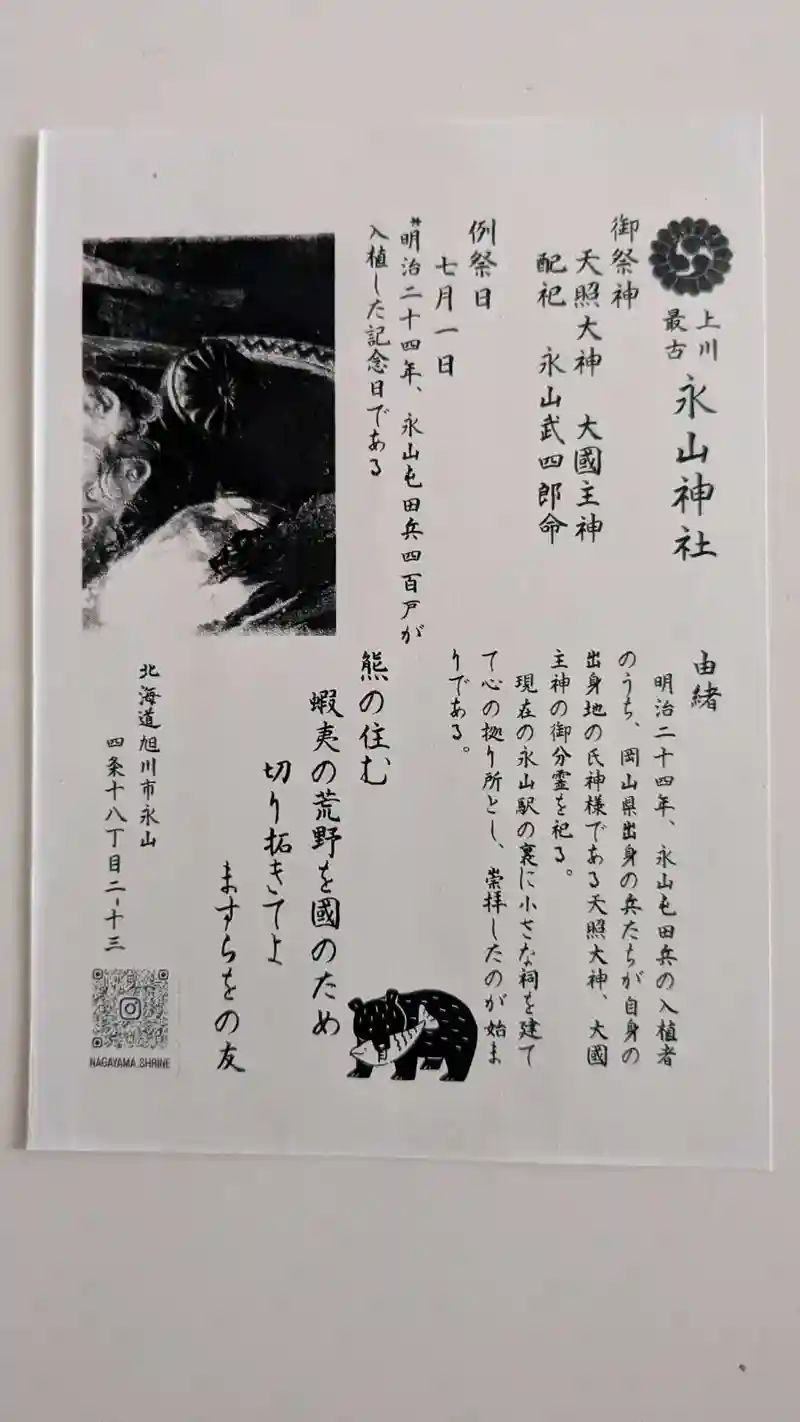 上川
最古
永山神社
御祭神
天照大神 大國主神
配祀 永山武四郎命
例祭日
七月一日
※明治二十四年、永山屯田兵四百戸が
入植した記念日である
由緒
明治二十四年、永山屯田兵の入植者
のうち、岡山県出身の兵たちが自身の
出身地の氏神様である天照大神、大國
主神の御分霊を祀る。
現在の永山駅の裏に小さな祠を建て
て心の拠り所とし、崇拝したのが始ま
りである。
熊の住む
蝦夷の荒野を國のため
切り拓きてよ
ますらをの友
北海道旭川市永山
四条十八丁目二-十三
NAGAYAMA_SHRINE